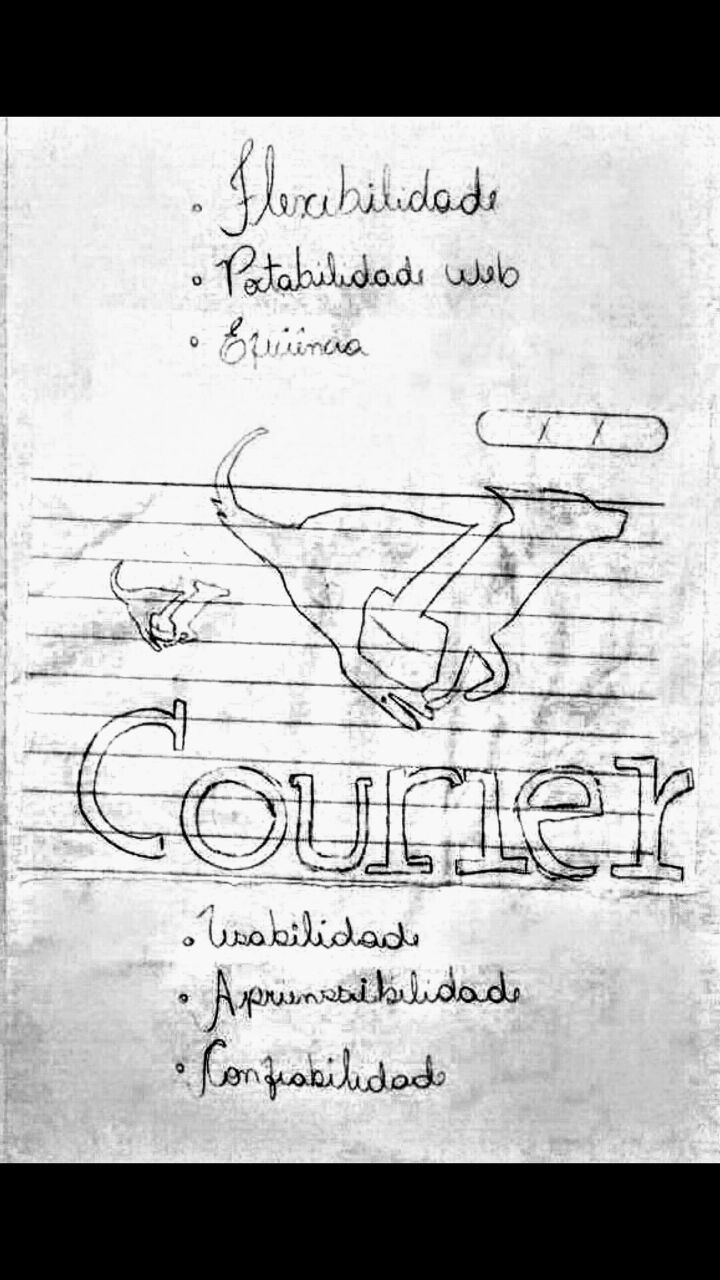 • Flexibilidade
• Portabilidade Web
• Eficiência
/ /
Courier
• Usabilidade
• Apriensibilidade
• Confiabilidade